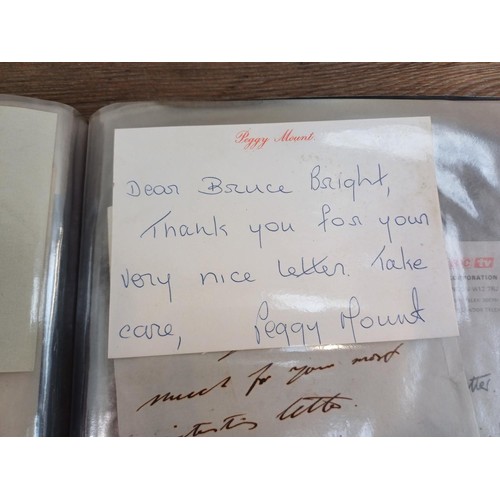 Peggy Mount
Dear Bruce Bright,
Thank you for your
very nice letter. Take
care, Peggy Mount
much for your most
letter.